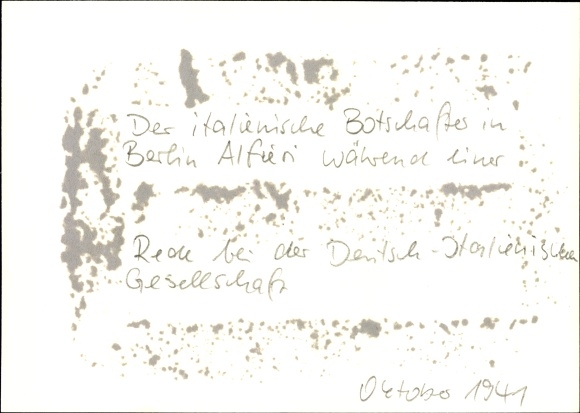 Der italienische Botschafter in
Berlin Alfieri während einer
Rede bei der Deutsch-Italienischen
Gesellschaft
Oktober 1941